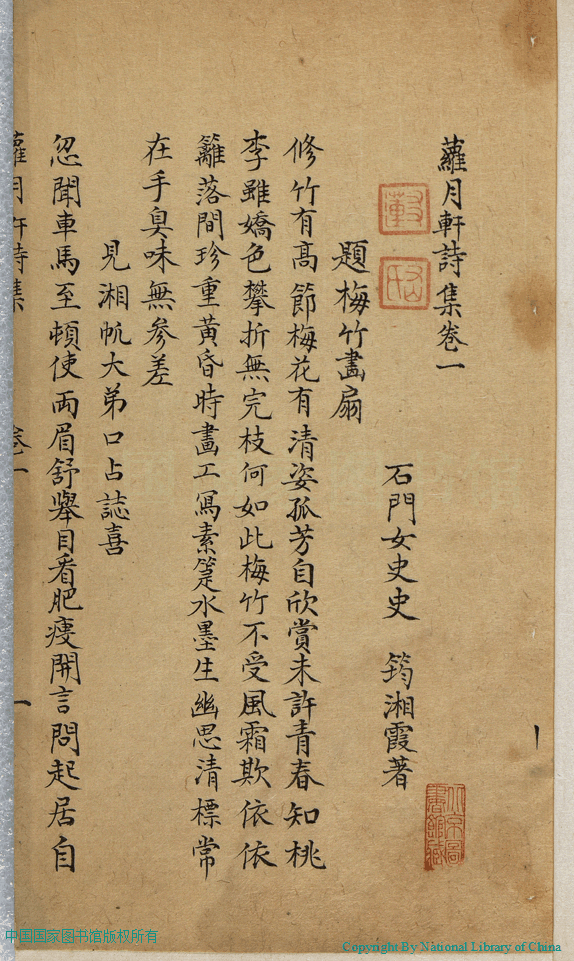 蘿月軒詩集卷一
石門女史史 筠湘霞著
題梅竹畫扇
修竹有高節梅花有清姿孤芳自欣賞未許青春知桃
李雖嬌色攀折無完枝何如此梅竹不受風霜欺依依
籬落間珍重黃昏時畫工寫素箑水墨生幽思清標常
在手臭味無參差
見湘帆大弟口占誌喜
忽聞車馬至頓使兩眉舒舉目看肥瘦開言問起居自
蘿月軒詩集 卷一 一
北京圖書館藏
中国国家图书馆版权所有
Copyright By National Library of China